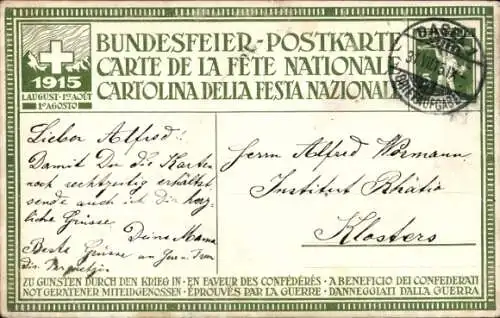 BUNDESFEIER-POSTKARTE
CARTE DE LA FÊTE NATIONALE
CARTOLINA DELLA FESTA NAZIONALE
1915
1. AUGUST · 1ER AOÛT
1O AGOSTO
BASEL
(BRIEFAUFGABE)
Lieber Alfred!
Damit Du die Karten
noch rechtzeitig erhältst,
sende auch ich Dir herz-
liche Grüsse.
Deine Mama
Beste Grüsse an Herrn & Frau
Dir.
Herrn Alfred Wormann,
Institut Rhätia
Klosters
ZU GUNSTEN DURCH DEN KRIEG IN · EN FAVEUR DES CONFÉDÉRÉS · A BENEFICIO DEI CONFEDERATI
NOT GERATENER MITEIDGENOSSEN · ÉPROUVÉS PAR LA GUERRE · DANNEGGIATI DALLA GUERRA